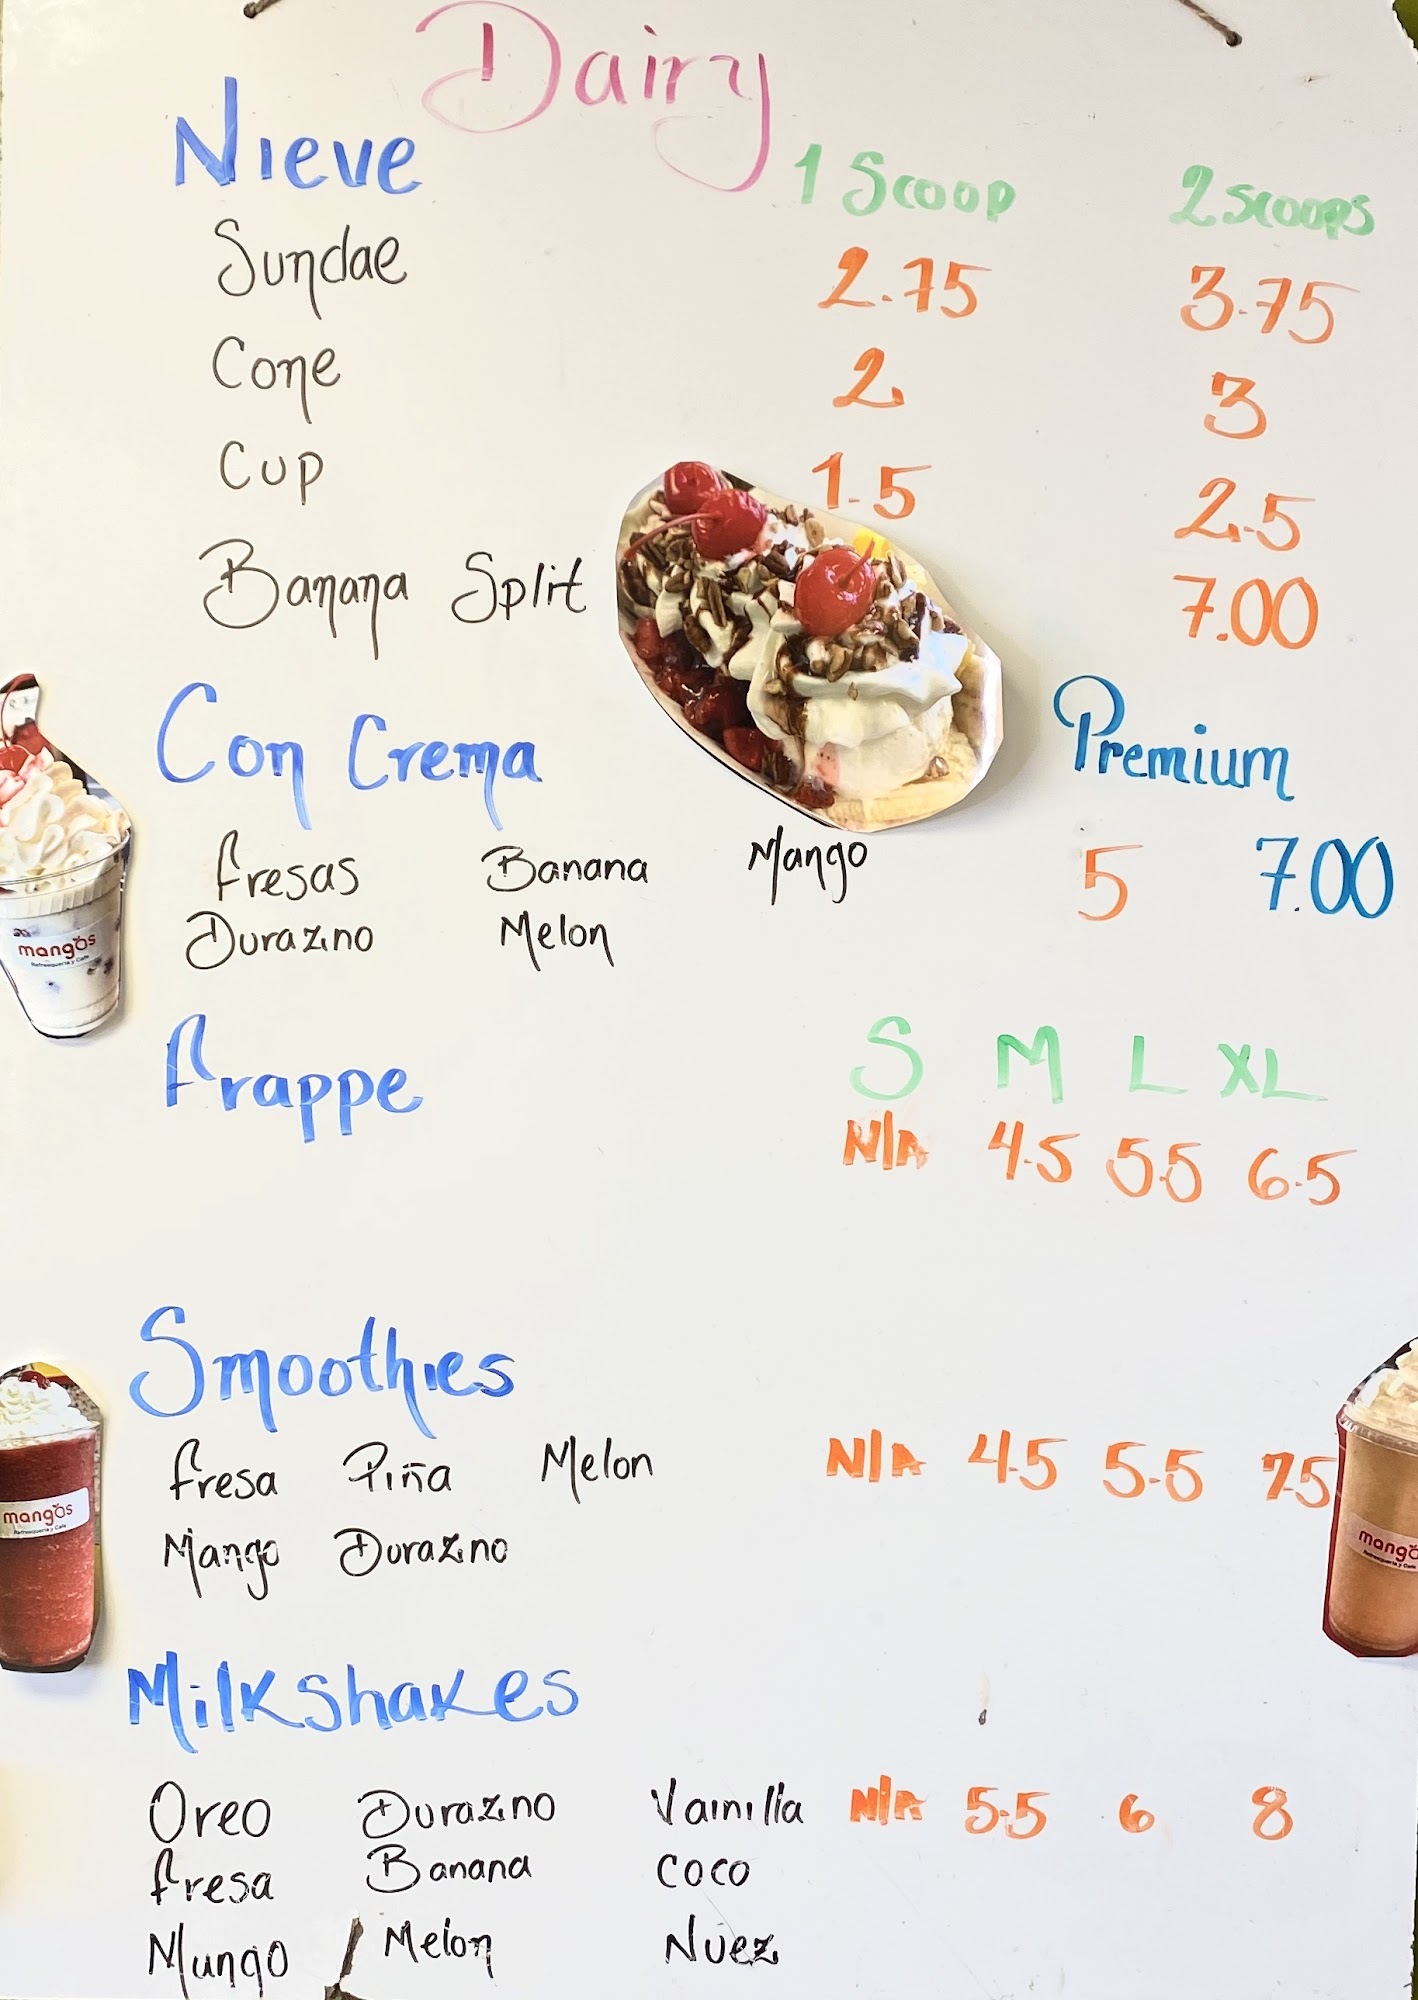 Dairy
Nieve 1 Scoop 2 scoops
Sundae 2.75 3.75
Cone 2 3
Cup 1.5 2.5
Banana Split 7.00
Con Crema Premium
fresas Banana Mango 5 7.00
Durazno Melon
mangos
Refresquería y Café
frappe S M L XL
N/A 4.5 5.5 6.5
Smoothies
fresa Piña Melon N/A 4.5 5.5 7.5
mangos
Refresquería y Café
Mango Durazno
mango
Refresquería y Café
Milkshakes
Oreo Durazno Vainilla N/A 5.5 6 8
fresa Banana coco
Mango Melon Nuez